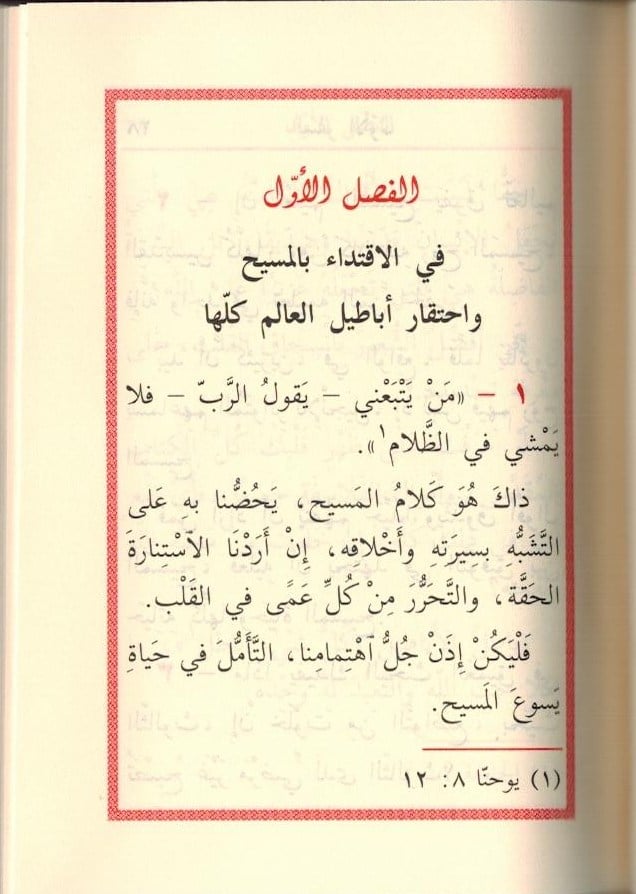 الفصل الأوّل
في الاقتداء بالمسيح
واحتقار أباطيل العالم كلّها
١ – «مَنْ يَتْبَعْني – يَقولُ الرَّبّ – فلا
يَمْشي في الظَّلام١».
ذاكَ هُوَ كَلامُ المَسيح، يَحُضُّنا بهِ عَلى
التَّشَبُّهِ بِسيرَتِهِ وأَخْلاقِه، إِنْ أَرَدْنَا ٱلاَسْتِنارَةَ
الحَقَّة، والتَّحَرُّرَ مِنْ كُلِّ عَمًى في القَلْب.
فَلْيَكُنْ إِذَنْ جُلُّ ٱهْتِمامِنا، التَّأَمُّلَ في حَياةِ
يَسوعَ المَسيح.
(١) يوحنّا ٨: ١٢